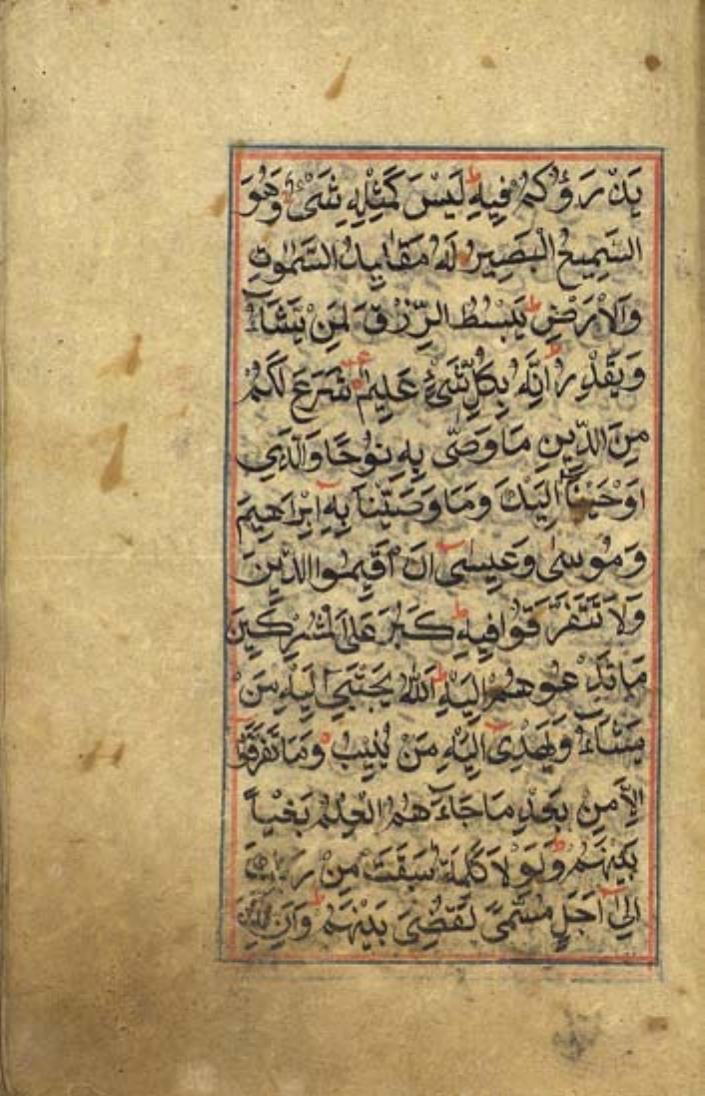 يَذْرَؤُكُمْ فِيهِ ط لَيْسَ كَمِثْلِهِ شَىْءٌ ج وَهُوَ
السَّمِيعُ الْبَصِيرُ لَهُ مَقَالِيدُ السَّمٰوٰتِ
وَالْاَرْضِ ط يَبْسُطُ الرِّزْقَ لِمَنْ يَشَآءُ
وَيَقْدِرُ ط اِنَّهُ بِكُلِّ شَىْءٍ عَلِيمٌ شَرَعَ لَكُمْ
مِنَ الدِّينِ مَا وَصّٰى بِهِ نُوْحًا وَالَّذِى
اَوْحَيْنَآ اِلَيْكَ وَمَا وَصَّيْنَا بِهٓ اِبْرَاهِيمَ
وَمُوسٰى وَعِيسٰىٓ اَنْ اَقِيمُوا الدِّيْنَ
وَلَا تَتَفَرَّقُوْا فِيهِ ط كَبُرَ عَلَى الْمُشْرِكِينَ
مَا تَدْعُوهُمْ اِلَيْهِ ط اَللّٰهُ يَجْتَبِىٓ اِلَيْهِ مَنْ
يَشَآءُ وَيَهْدِىٓ اِلَيْهِ مَنْ يُنِيبُ وَمَا تَفَرَّقُوْٓا
اِلَّا مِنْ بَعْدِ مَا جَآءَهُمُ الْعِلْمُ بَغْيًا
بَيْنَهُمْ ط وَلَوْلَا كَلِمَةٌ سَبَقَتْ مِنْ رَبِّكَ
اِلٰٓى اَجَلٍ مُسَمًّى لَقُضِىَ بَيْنَهُمْ ط وَاِنَّ الَّذِيْنَ